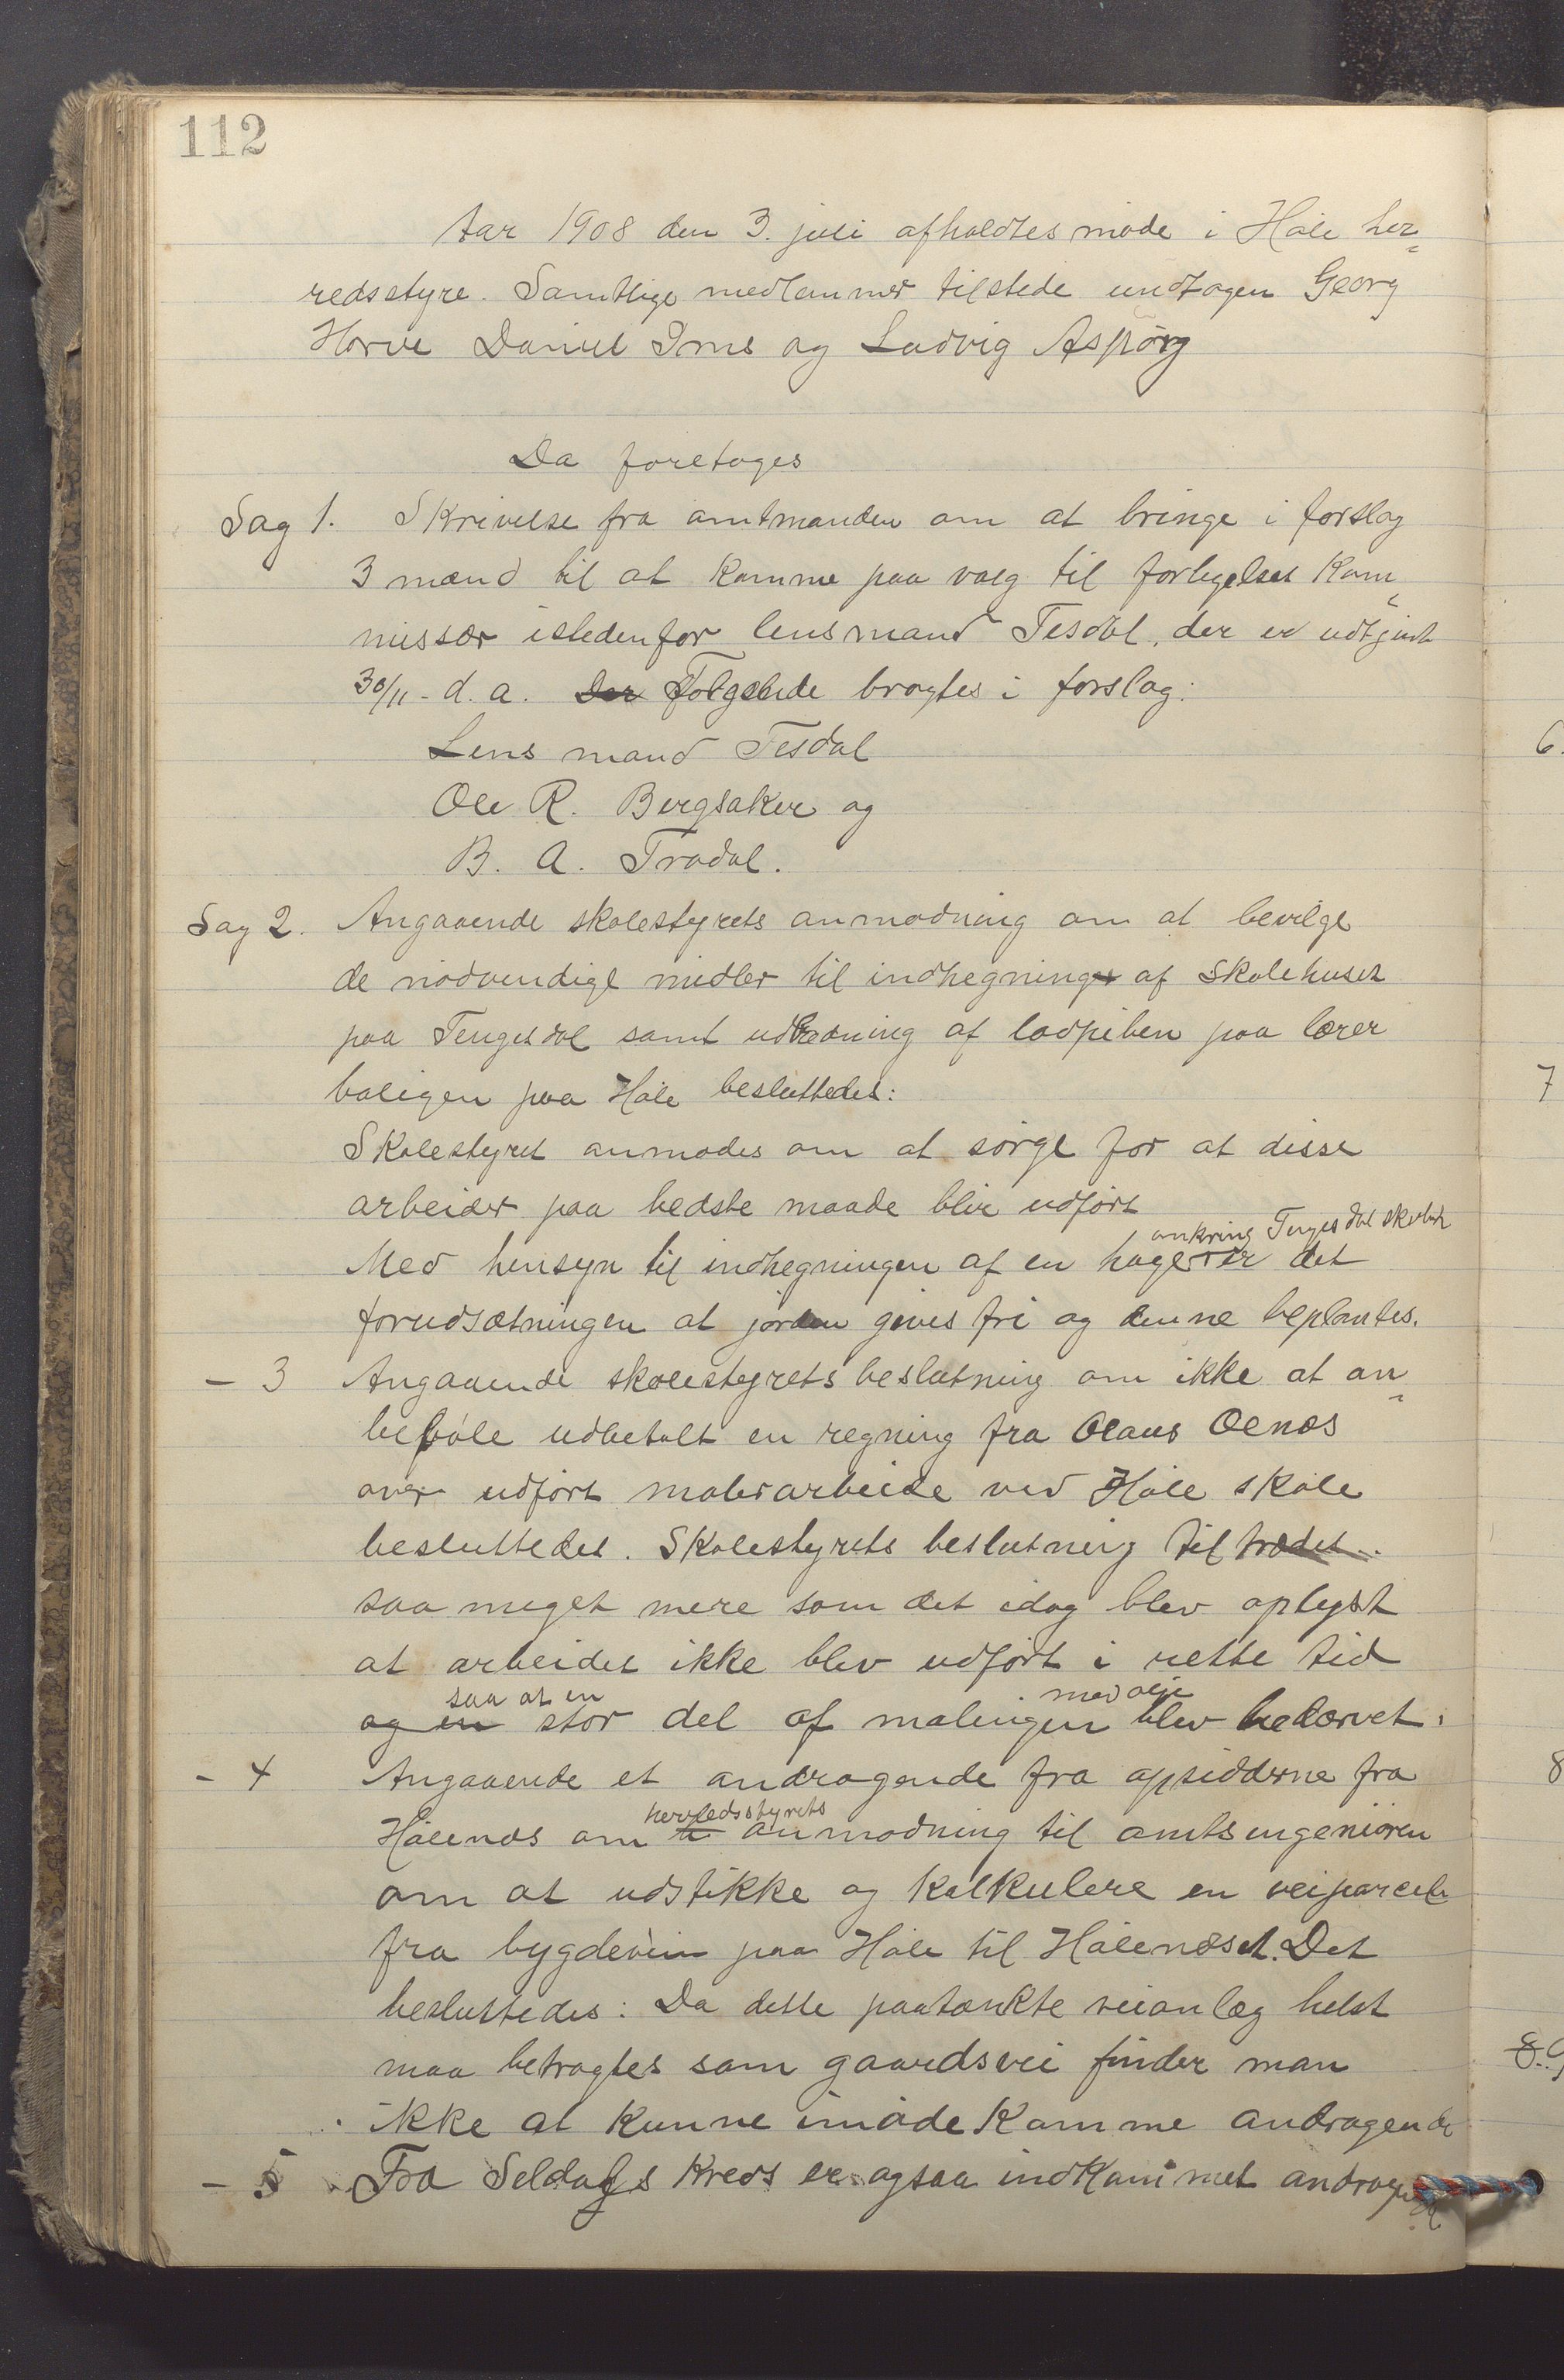 112
Aar 1908 den 3. juli afholdtes møde i Høle her-
redsstyre. Samtlige medlemmer tilstede undtagen Georg
Horve Daniel Ims og Ludvig Aspörg
Da foretoges
Sag 1. Skrivelse fra amtmanden om at bringe i forslag
3 mænd til at komme paa valg til forligelses Kom-
missær istedenfor lensmand Tesdal, der er udtjent
30/11 - d.a. Der Følgende bragtes i forslag:
Lensmand Tesdal
Ole R. Bergsaker og
B. A. Tradal.
Sag 2. Angaaende skolestyrets anmodning om at bevilge
de nødvendige midler til indhegning af Skolehuset
paa Tengesdal samt udbedning af ladpiben paa lærer
boligen paa Høle besluttedes:
Skolestyret anmodes om at sørge for at disse
arbeider paa bedste maade blir udført
omkring Tengesdal skoleh
Med hensyn til indhegningen af en hage er det
forudsætningen at jorden gives fri og denne beplantes.
- 3 Angaaende skolestyrets beslutning om ikke at an-
befale udbetalt en regning fra Olaus Oenæs
over udført malerarbeide ved Høle skole
besluttedes. Skolestyrets beslutning tiltrædes..
saa meget mere som det idag blev oplyst
at arbeidet ikke blev udført i rette tid
saa at en med olje
og en stor del af malingen blev bedærvet.
- 4 Angaaende et andragende fra opsidderne fra
herredsstyrets
Hølenæs om anmodning til amtsingeniøren
om at udstikke og kalkulere en veiparcel
fra bygdevein paa Høle til Hølenæset. Det
besluttedes: Da dette paatænkte veianlæg helst
maa betragtes som gaardsvei finder man
ikke at kunne imødekomme andragende
- 5 Fra Seldals Kreds er ogsaa indkommet andragende
6.
7
8
8.9